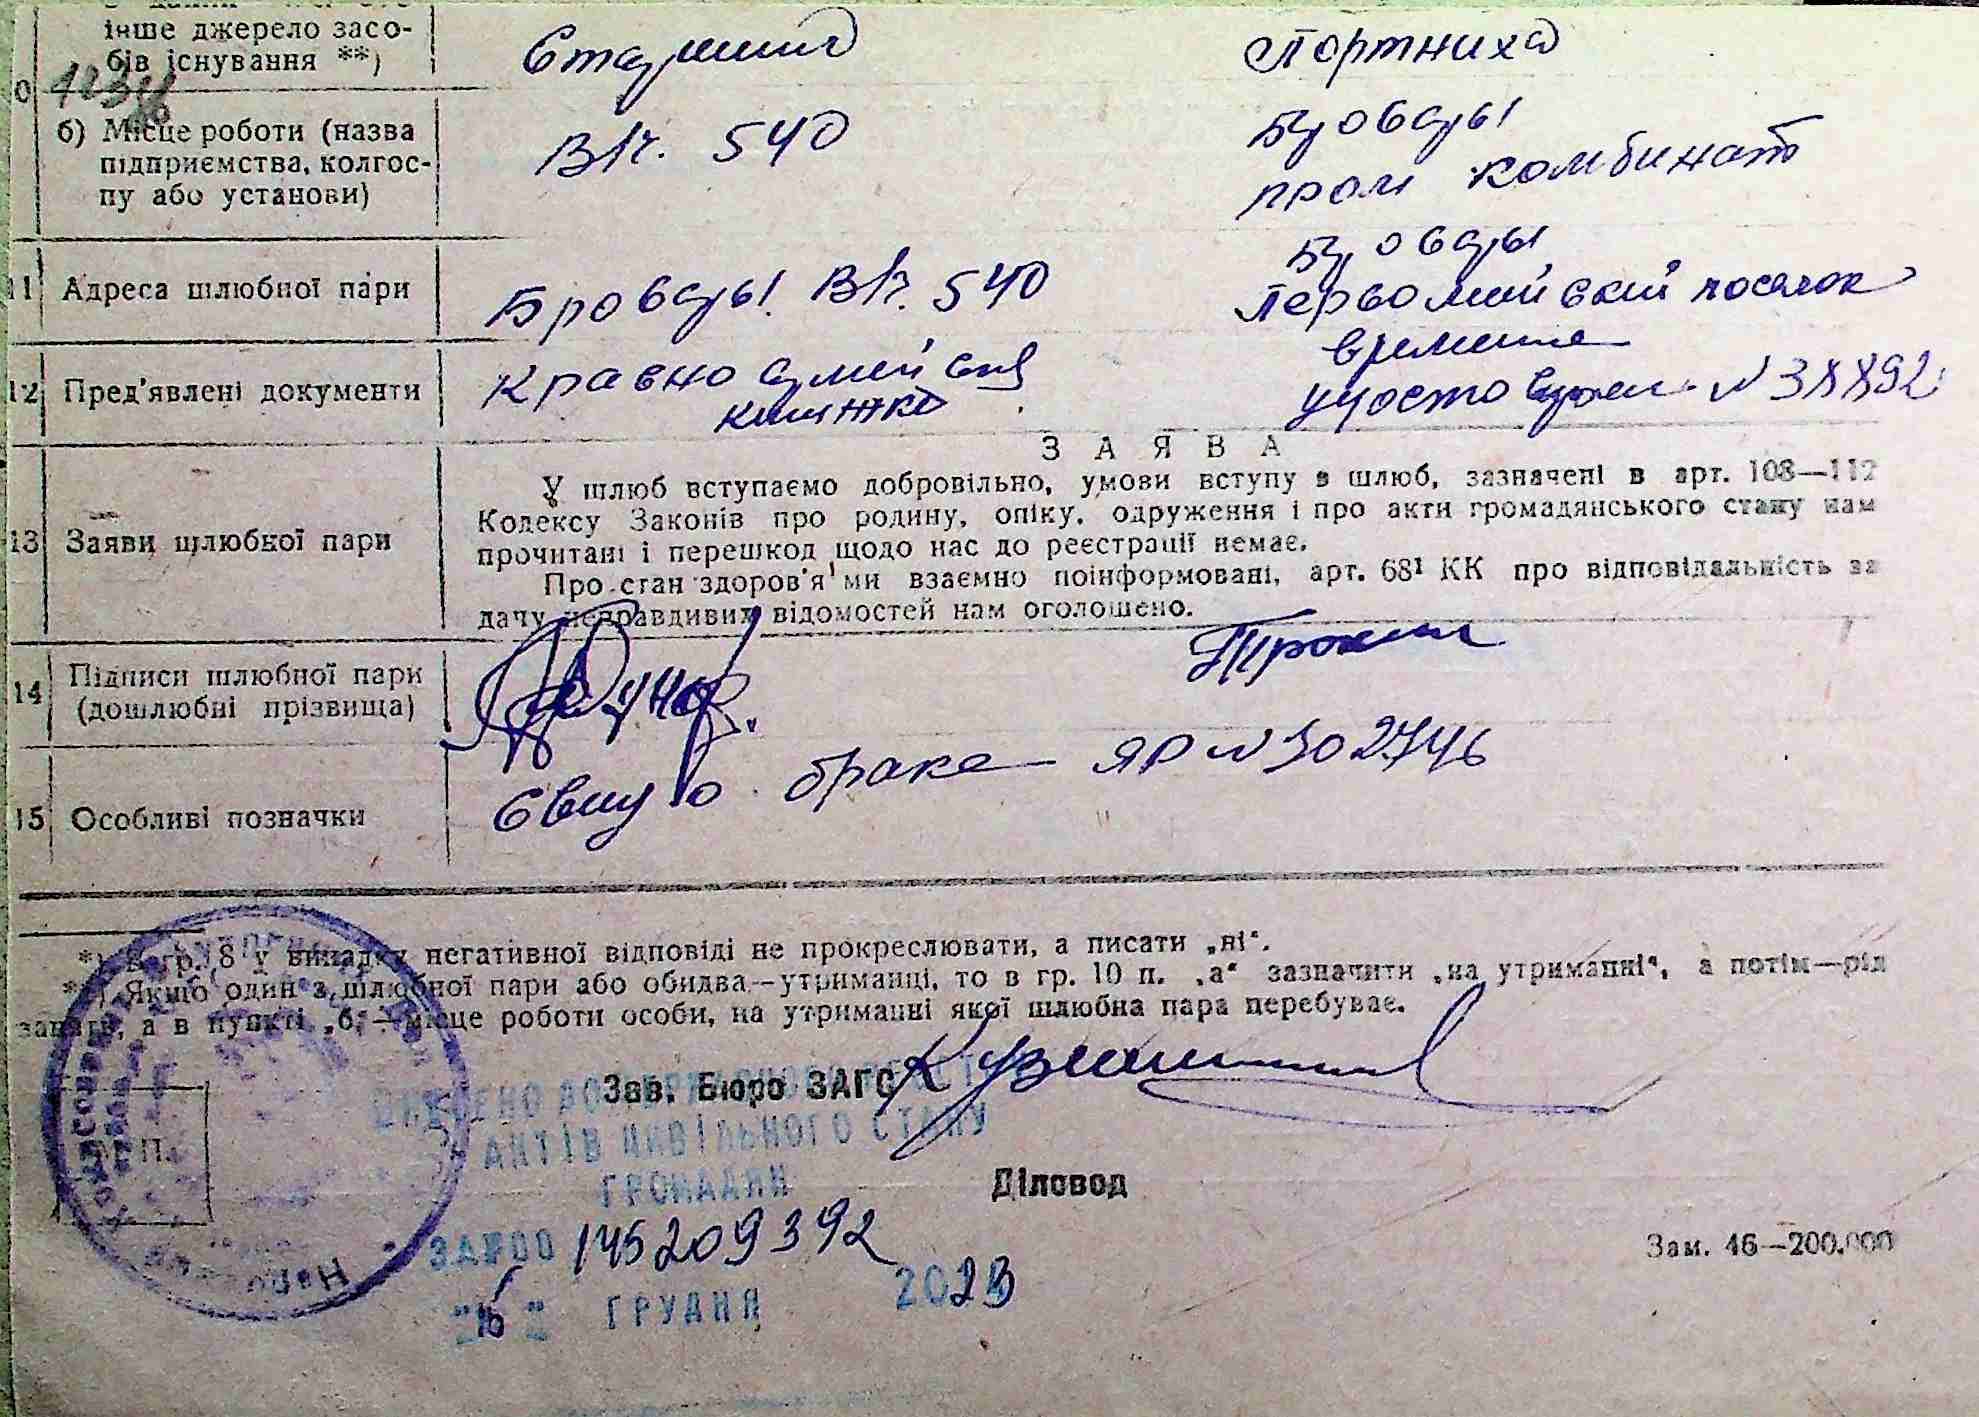 інше джерело засо-
бів існування **)
Старшина
Портниха
б) Місце роботи (назва
підприємства, колгос-
пу або установи)
В/ч. 540
Бровары
пром комбинат
11 Адреса шлюбної пари
Бровары В/ч. 540
Бровары
Первомайский поселок
12 Пред'явлені документи
Красно армейская
книжка
времене
удостоверен N 38892
ЗАЯВА
13 Заяви шлюбної пари
У шлюб вступаємо добровільно, умови вступу в шлюб, зазначені в арт. 108—112
Кодексу Законів про родину, опіку, одруження і про акти громадянського стану нам
прочитані і перешкод щодо нас до реєстрації немає.
Про стан здоров'я ми взаємно поінформовані, арт. 68¹ КК про відповідальність за
дачу неправдивих відомостей нам оголошено.
14 Підписи шлюбної пари
(дошлюбні прізвища)
15 Особливі позначки
Свид о браке ЯР N 302746
*) В гр. 8 у випадку негативної відповіді не прокреслювати, а писати „ні“.
**) Якщо один з шлюбної пари або обидва—утриманці, то в гр. 10 п. „а“ зазначити „на утриманні“, а потім—рід
занять, а в пункті „б“—місце роботи особи, на утриманні якої шлюбна пара перебуває.
Зав. Бюро ЗАГС
ВНЕСЕНО ДО ДЕРЖАВНОГО РЕЄСТРУ
АКТІВ ЦИВІЛЬНОГО СТАНУ
ГРОМАДЯН
М. П.
Діловод
ЗА №00 145209392
"16" ГРУДНЯ 2023
Зам. 46—200.000